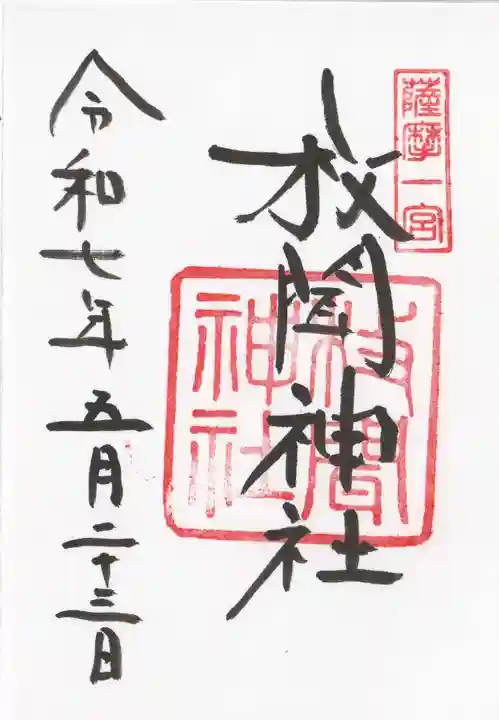 薩摩一宮
枚聞神社
枚聞神社
令和七年五月二十三日